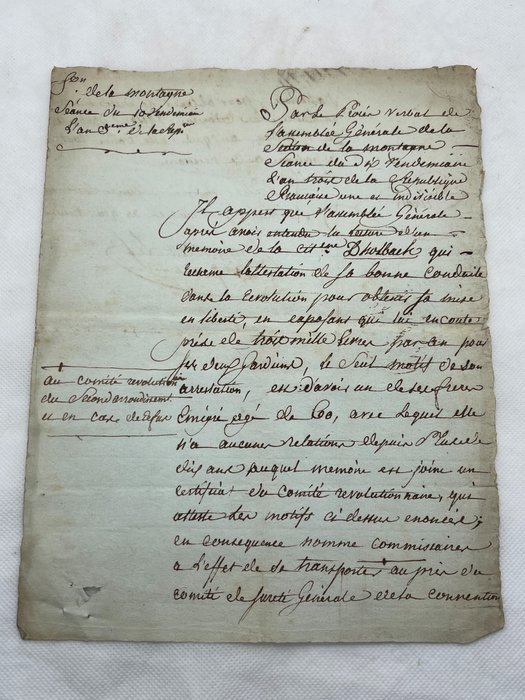 Son
de la montagne
Séance du 10 Vendemiaire
L'an 3eme de la Repu
Par le Procès Verbal de
l'assemblée Générale de la
Section de la montagne
Séance du dix Vendemiaire
L'an trois de la République
Française une et indivisible
Il appert que l'assemblée Générale
après avoir entendu la lecture d'un
mémoire de la citene Dholback qui
reclame l'attestation de sa bonne conduite
dans la revolution pour obtenir sa mise
en liberté, en exposant qu'il lui en coute
près de trois mille livres par an pour
ses deux gardiens, le seul motif de son
arrestation, est d'avoir un de ses freres
Emigré agé de 60, avec lequel elle
n'a aucunes relations depuis plus de
dix ans auquel mémoire est joint un
certificat du Comité revolutionnaire, qui
atteste les motifs ci dessus enoncés;
en consequence nomme commissaires
a l'effet de se transporter au près du
comité de sureté Générale de la convention
au comité revolution
du Second arrondissement
et en cas de refus